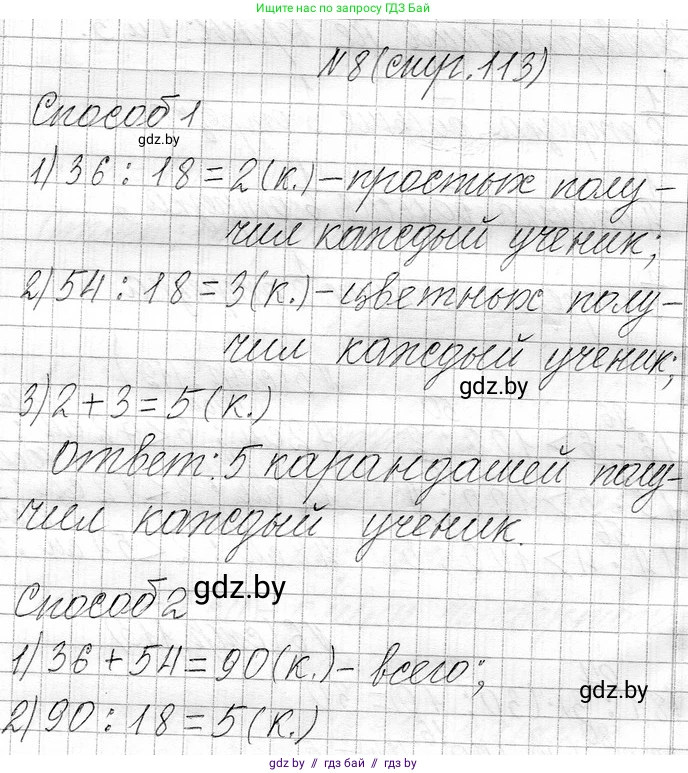 Ищите нас по запросу ГДЗ Бай
№8(стр.113)
Способ 1
gdz.by
1) 36 : 18 = 2(к.) – простых полу-
чил каждый ученик;
2) 54 : 18 = 3(к.) – цветных полу-
чил каждый ученик;
gdz.by
3) 2 + 3 = 5 (к.)
Ответ: 5 карандашей полу-
чил каждый ученик.
gdz.by
Способ 2
1) 36 + 54 = 90(к.) – всего;
gdz.by
2) 90 : 18 = 5(к.)
gdz.by // гдз бай // gdz.by